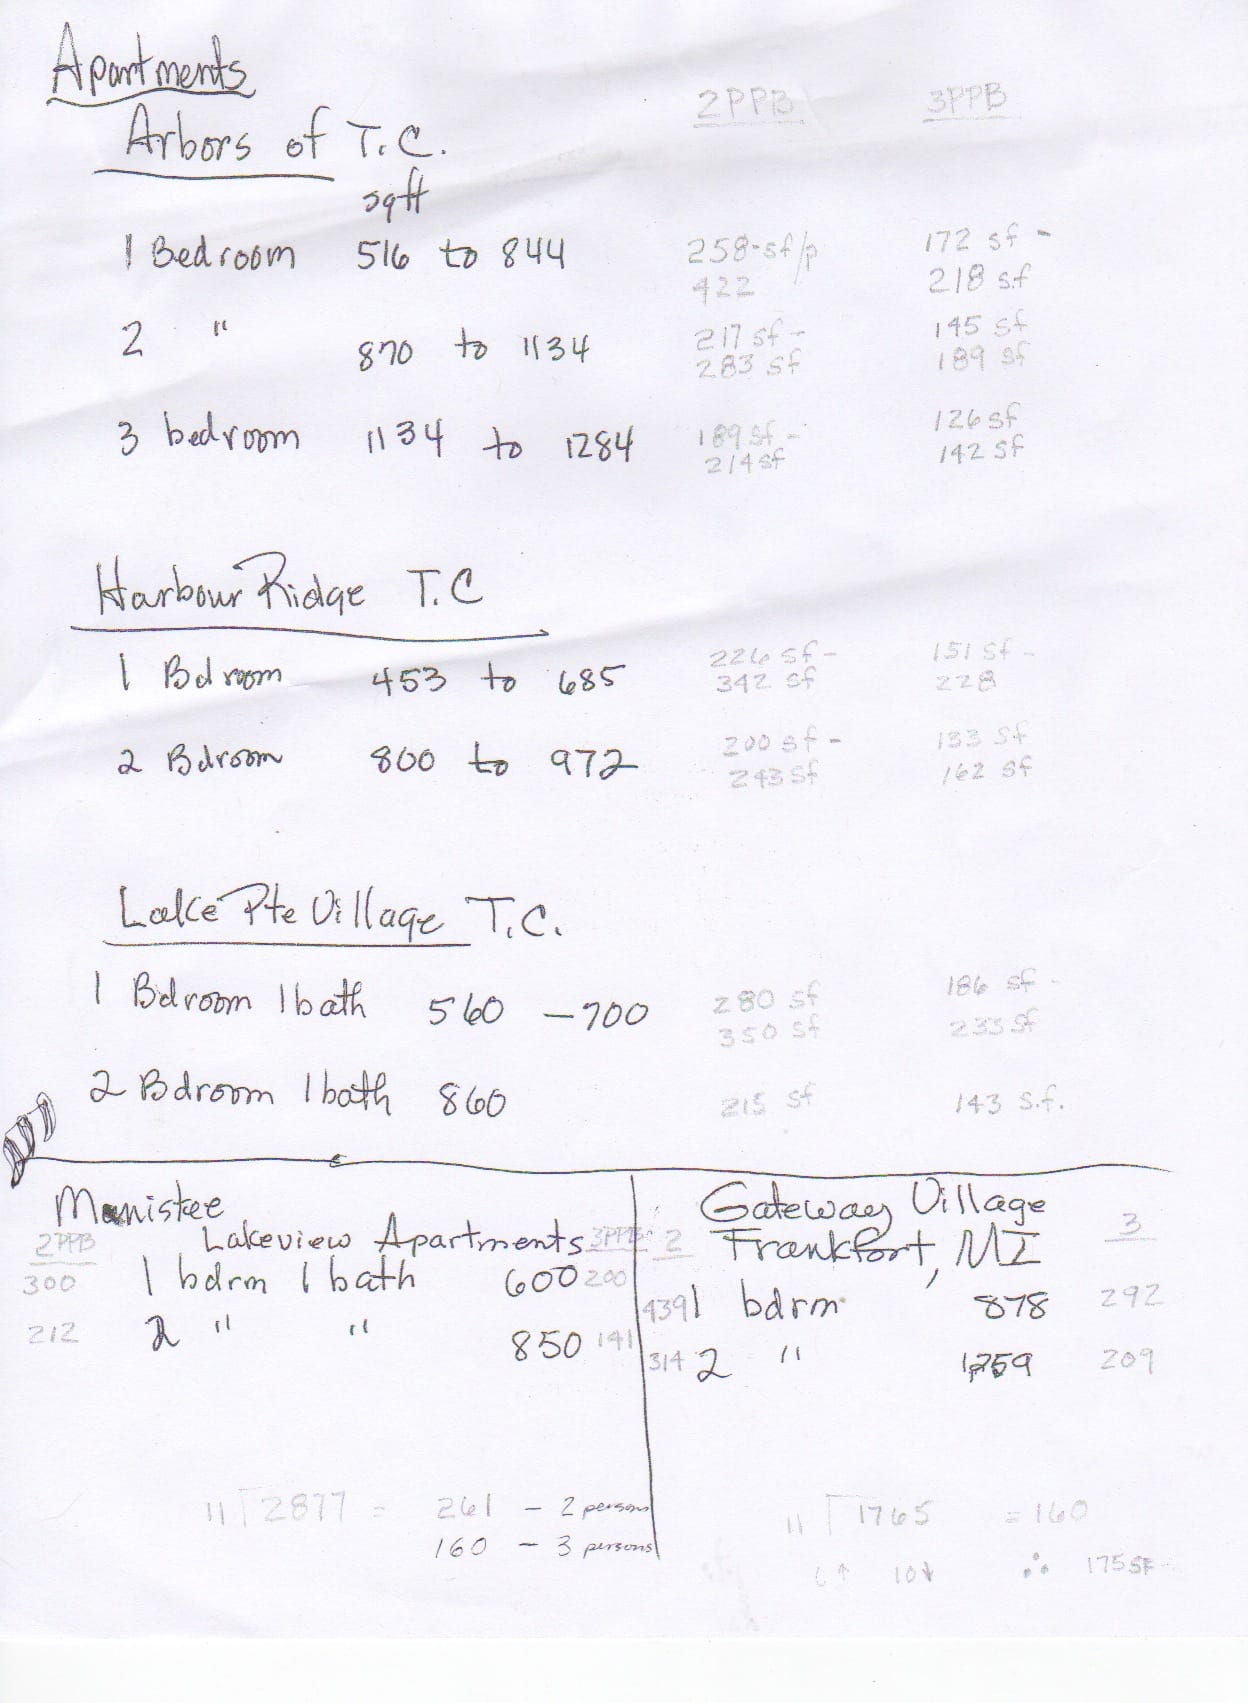 Apartments
2PPB 3PPB
Arbors of T.C.
sqft
1 Bedroom 516 to 844 258-sf/p 172 sf -
422 218 sf
2 " 870 to 1134 217 sf - 145 sf
283 sf 189 sf
3 bedroom 1134 to 1284 189 sf - 126 sf
214 sf 142 sf
Harbour Ridge T.C
1 Bdroom 453 to 685 226 sf - 151 sf -
342 sf 228
2 Bdroom 800 to 972 200 sf - 133 sf
243 sf 162 sf
Lake Pte Village T.C.
1 Bdroom 1 bath 560 - 700 280 sf 186 sf -
350 sf 233 sf
2 Bdroom 1 bath 860 215 sf 143 s.f.
Manistee
2PPB Lakeview Apartments 3PPB
300 1 bdrm 1 bath 600 200
212 2 " " 850 141
Gateway Village
2 Frankfort, MI 3
439 1 bdrm 878 292
314 2 " 1259 209
11 2877 = 261 - 2 persons
160 - 3 persons
11 1765 = 160
6↑ 10↓ ∴ 175 SF